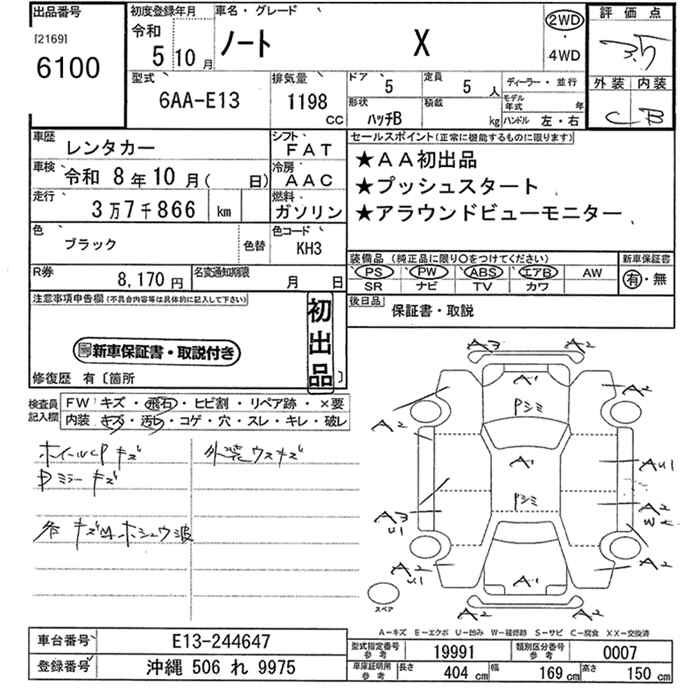 出品番号 初度登録年月 車名・グレード 評価点
[2169] 6100 令和 5年10月 ノート X 2WD・4WD 3.5
型式 排気量 ドア 5 定員 5人 ディーラー・並行 外装 内装
6AA-E13 1198 CC 形状 ハッチB 積載 kg モデル年式 年 ハンドル 左・右 C B
車歴 レンタカー シフト FAT セールスポイント(正常に機能するものに限ります)
車検 令和 8年10月( 日) 冷房 AAC ★AA初出品
★プッシュスタート
走行 3万7千866 km 燃料 ガソリン ★アラウンドビューモニター
色 ブラック 色替 色コード KH3
装備品(純正品に限り○をつけてください) 新車保証書
R券 8,170円 名変通知期限 月 日 PS PW ABS エアB AW 有・無
SR ナビ TV カワ
注意事項申告欄(不具合内容等は具体的に記入して下さい) 初出品 後日品 保証書・取説
新車保証書・取説付き
修復歴 有〔箇所 〕
検査員記入欄 FW キズ・飛石・ヒビ割・リペア跡・×要
内装 キズ・汚れ・コゲ・穴・スレ・キレ・破レ
ホイールCP キズ 外装ウスキズ
Dミラー キズ
各 キズ凹 ホシュウ波
A3 A2
A1
A2 Pシミ A2
A1 AU1
A3 Pシミ A2
U1 W
A2 A1 A2
U1
A2 A2
スペア
A-キズ E-エクボ U-凹み W-補修跡 S-サビ C-腐食 XX-交換済
車台番号 E13-244647 型式指定番号 参考 19991 類別区分番号 参考 0007
登録番号 沖縄 506 れ 9975 車庫証明用 参考 長さ 404 cm 幅 169 cm 高さ 150 cm